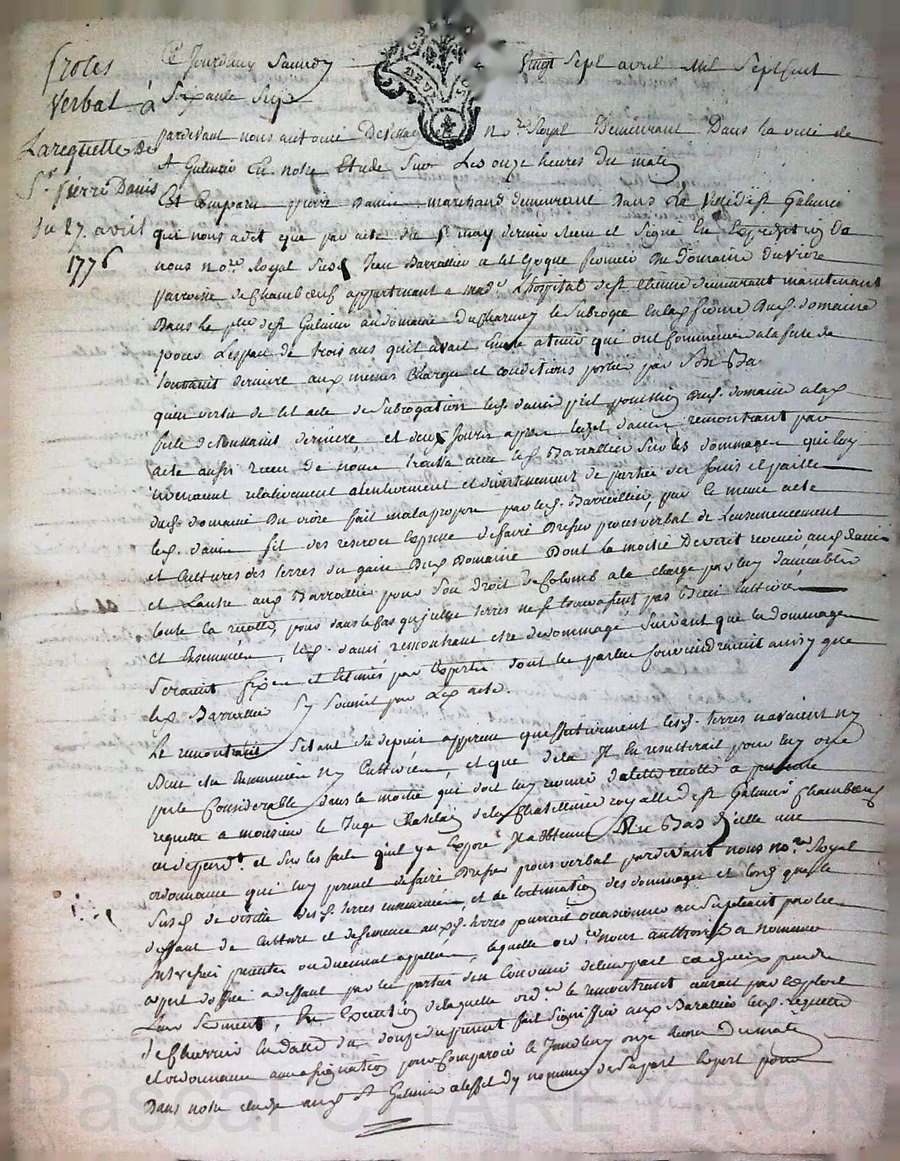 Proces
Verbal à
La requette de
Sr. pierre Danis
du 27. avril
1776
Ce Jourdhuy Samedy vingt Sept avril Mil Sept Cent
Soixante Seze
pardevant nous antoine nore. Royal Demeurant Dans la ville de
St Galmier En notre Etude Sur Les onze heures du matin
Est Comparu pierre Danis marchand demeurant Dans la ville de St Galmier
qui nous a dit que par acte du may dernier Recu et Signé En Expedition de
nous nore. Royal Susd. Jean Barrallier a fermier du domaine du vivre
parroisse de Chambœuf appartenant a made. Lhospital de St Etienne demeurant maintenant
Dans la de St Galmier au domaine du le Subrogea En la ferme Dud. domaine
pour L'espace de trois ans qu'il avait Encore a tenir qui ont Commencé a la fete de
toussaint derniere aux memes Charges et conditions portées par Son Bail
qu'en vertu de Cet acte de Subrogation led. danis prit possession Dud. domaine a la
fete de toussaint derniere, et deux Jours apres Danis remontrant par
acte aussi recu de nous aved led. Barrallier Sur les dommages qui luy
revenaient relativement a lenlevement et divertissement de partie des foins et paille
dud. domaine Du vivre fait mal a propos par led. Barrallier, par le meme acte
led. danis fit des reserves Expresse de faire Dresser proces verbal de L'ensemencement
et Cultures des terres du gain Dud. Domaine Dont la moitié Devait revenir aud. Danis
et L'autre aud. Barrallier pour Son Droit de Colomb a la charge par luy
toute la recolte, pour dans le Cas qu'icelles terres ne se trouvassent pas Bien Cultivées
et Ensemencées, led. danis remontrant etre dedommagé Suivant que les dommages
Seraient fixés et Estimés par Experts dont les parties Conviendraient ainsy que
led. Barrallier s'y Soumit par Led. acte.
Le remontrant S'etant du depuis apperçu qu'effectivement lesd. terres n'avaient ny
Bien été Ensemencées ny Cultivées, et que de la Il en resulterait pour luy une
perte Considerable dans la moitié qui doit luy revenir de laditte recolte a presenté
requette a monsieur le Juge Chatelain de la Chatellenie royalle de St Galmier Chambœuf
en depend. et Sur les faits qu'il y a Exposé Il a obtenu Au Bas d'icelle une
ordonnance qui luy permet de faire Dresser proces verbal pardevant nous nore. Royal
Susd. de visitte desd. terres ensemencées et de lestimation des dommages et que le
deffaut de Culture et de semence auxd. terres pourrait occasionner au Supliant parties
Interessées presentes ou duement appellées, laquelle ordce. nous authorise a nommer
expert d'office a deffaut par les parties d'en Convenir de leur part et a prendre
Leur Serment, En Execution de laquelle ordce. le remontrant aurait par Exploit
de Charroin En datte du douze du present fait Signiffier aud. Barallier lesd. requette
et ordonnance avec assignation pour Comparoir Ce Jourdhuy onze heures Du matin
Dans notre etude aud. St Galmier a leffet d'y nommer de Sa part Expert pour
Pascal CHAREYRON